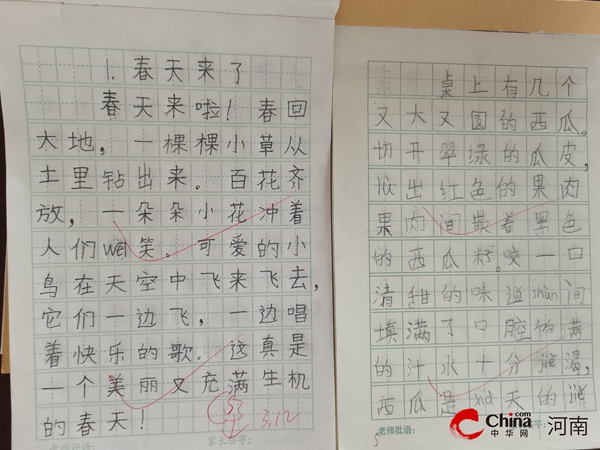 1. 春天来了
春天来啦！春回
大地，一棵棵小草从
土里钻出来。百花齐
放，一朵朵小花冲着
人们wēi笑。可爱的小
鸟在天空中飞来飞去，
它们一边飞，一边唱
着快乐的歌。这真是
一个美丽又充满生机
的春天！
3.12
老师批语：
家长签字：
桌上有几个
又大又圆的西瓜。
切开翠绿的瓜皮，
出红色的果肉
果肉间嵌着黑色
的西瓜籽。咬一口
清甜的味道shùn间
填满了口腔
的汁水十分渴，
西瓜是xià天的
5
老师批语：
签字：
China.com
中华网
河南